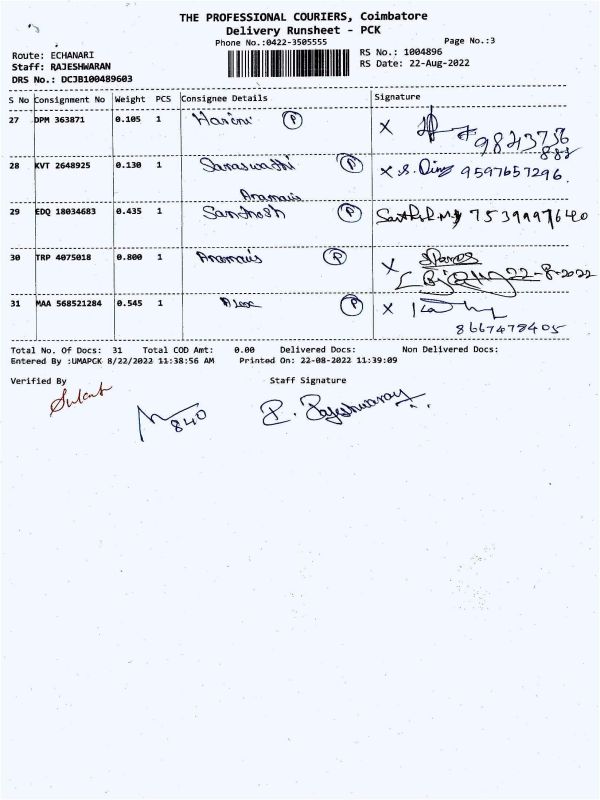 THE PROFESSIONAL COURIERS, Coimbatore
Delivery Runsheet - PCK
Phone No.:0422-3505555
Page No.:3
Route: ECHANARI
RS No.: 1004896
Staff: RAJESHWARAN
RS Date: 22-Aug-2022
DRS No.: DCJB100489603
S No Consignment No Weight PCS Consignee Details Signature
27 DPM 363871 0.105 1 Harini P X
9843756
882
28 KVT 2648925 0.130 1 Saraswathi P X 9597657296.
29 EDQ 18034683 0.435 1 Santhosh P 7539997640
30 TRP 4075018 0.800 1 P X
22-8-2022
31 MAA 568521284 0.545 1 Alex P X
8667478405
Total No. Of Docs: 31 Total COD Amt: 0.00 Delivered Docs: Non Delivered Docs:
Entered By :UMAPCK 8/22/2022 11:38:56 AM Printed On: 22-08-2022 11:39:09
Verified By Staff Signature
840
P. Rajeshwaran